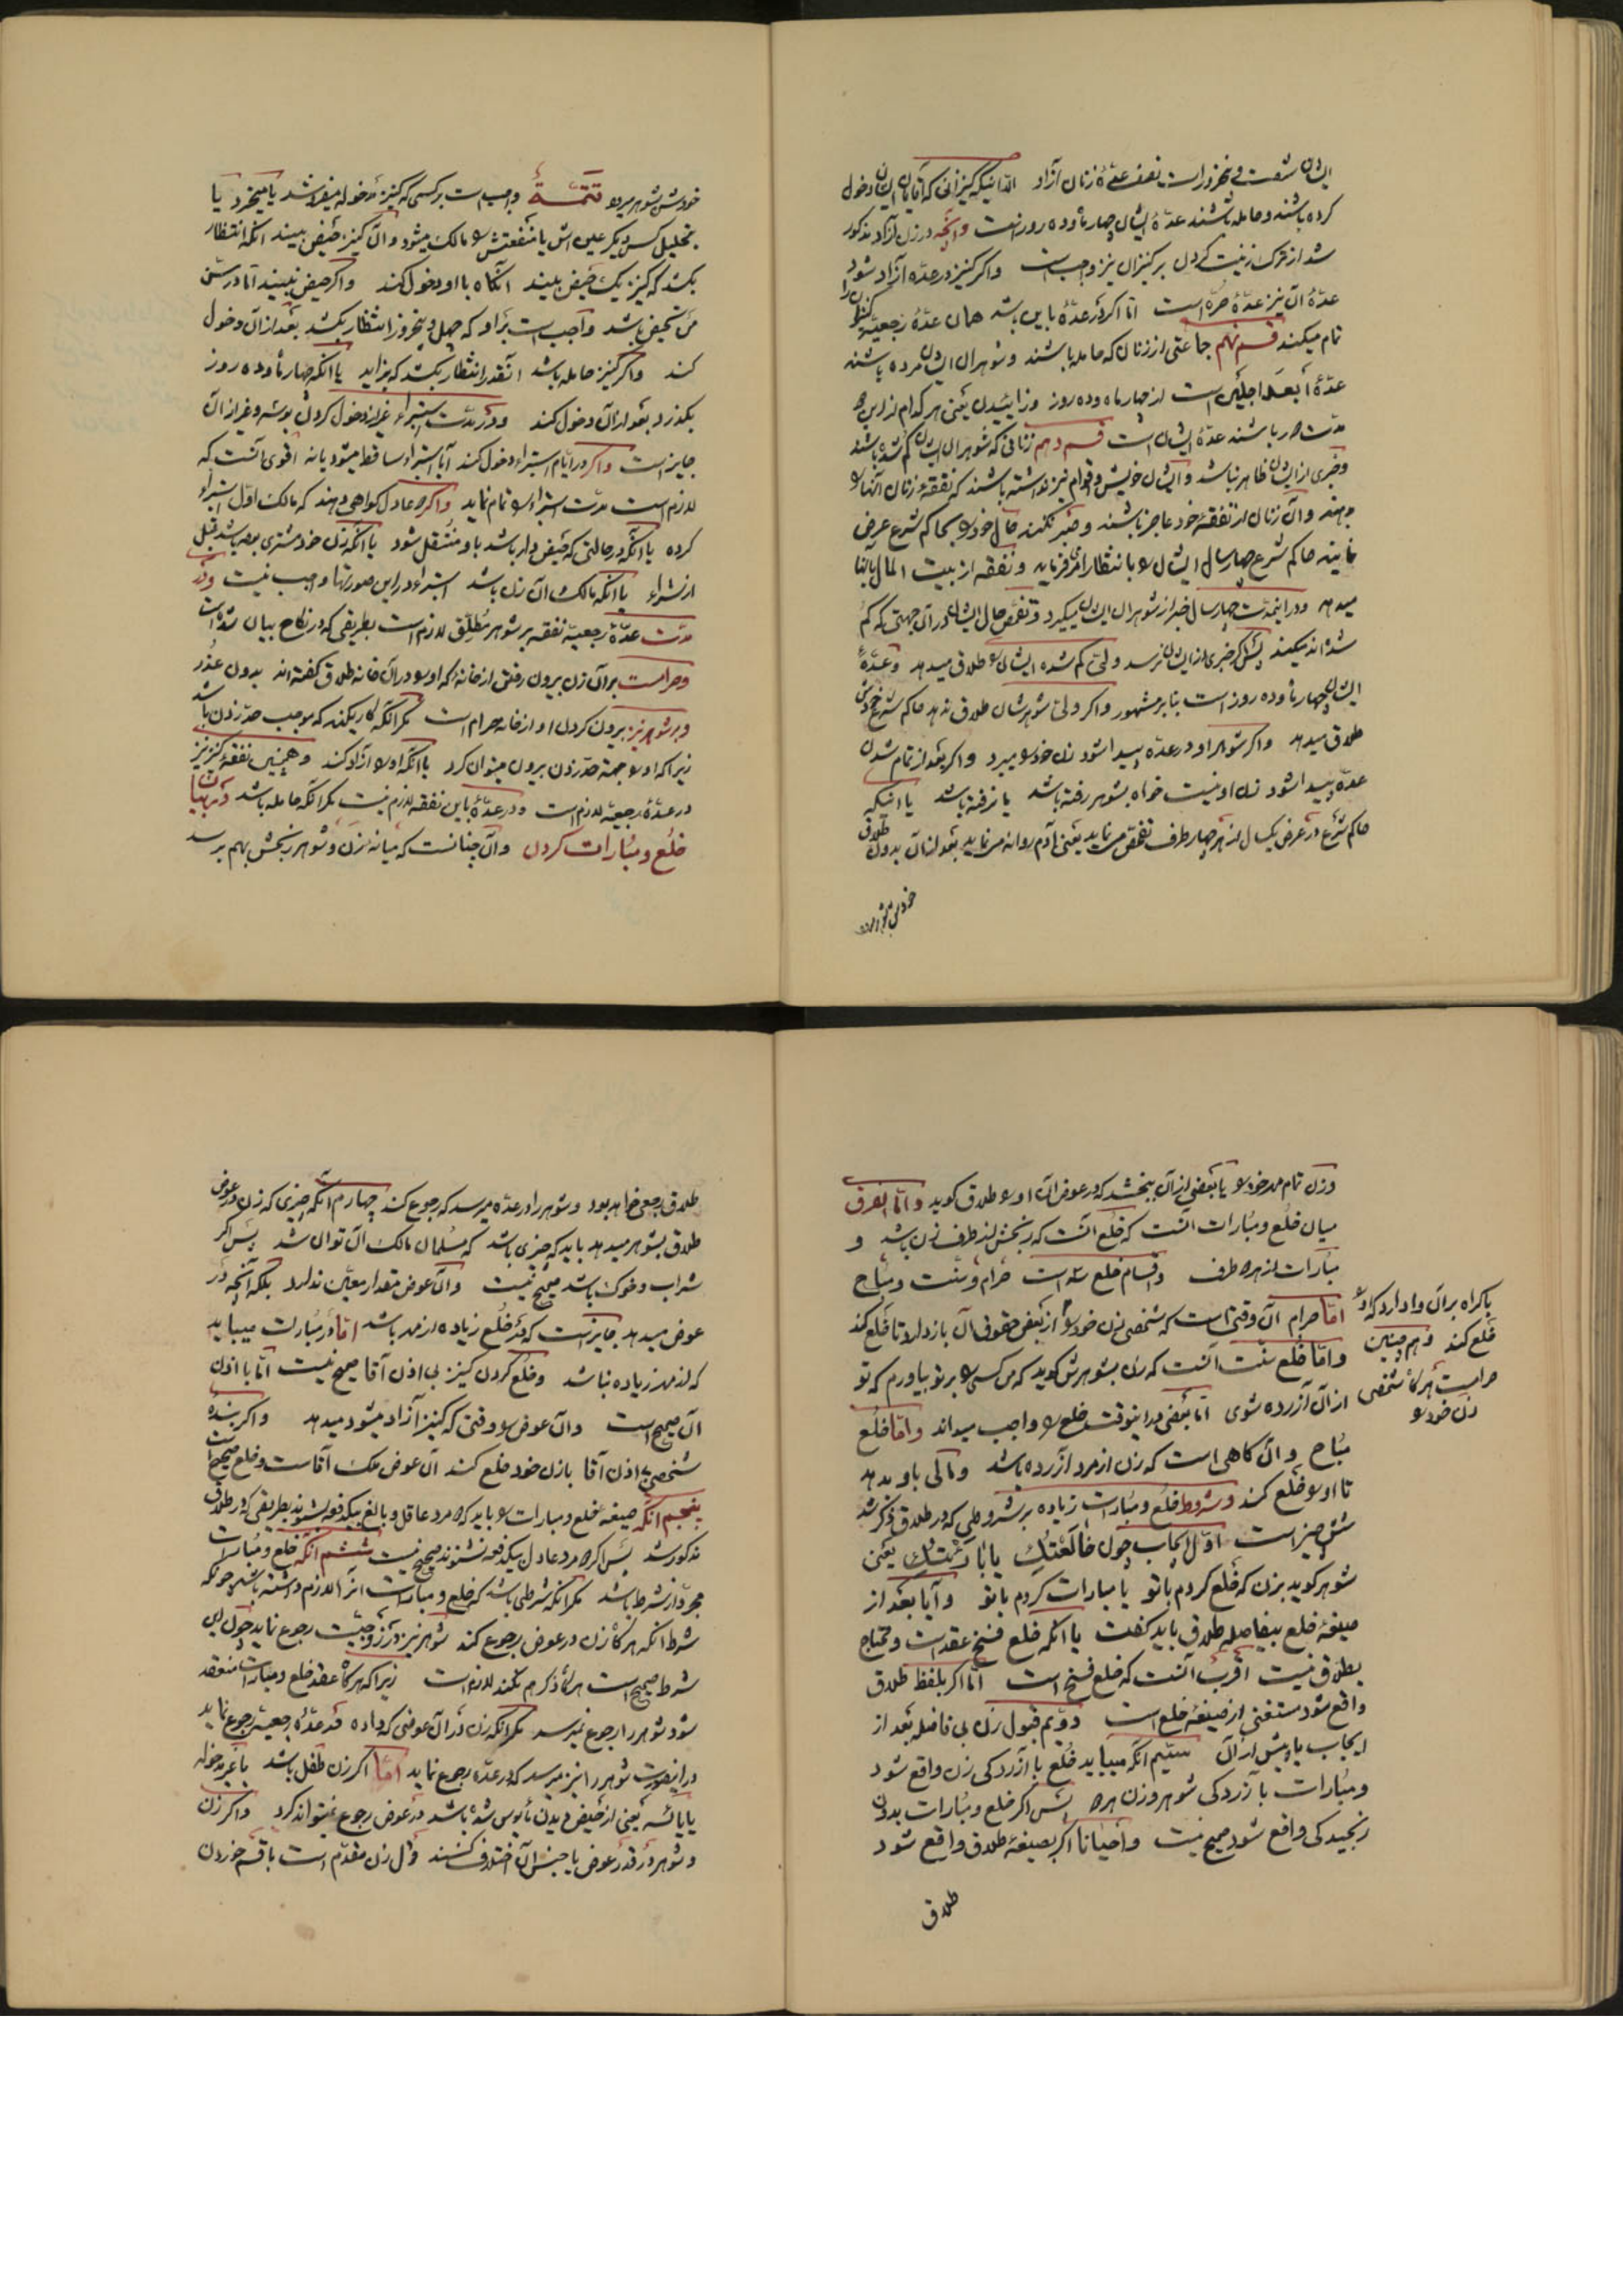 ایشان شصت و پنجروز است نصف عدّهٔ زنان آزاد الّا اینکه کنیزانی که آقایان ایشان دخول
کرده باشند و حامله باشند عدّهٔ ایشان چهار ماه و ده روز است و آنچه در زن آزاد مذکور
شد از ترک زینت کردن بر کنیزان نیز واجب است و اگر کنیز در عدّه آزاد شود
عدّهٔ آن نیز عدّهٔ حرّه است امّا اگر در عدّهٔ باین باشد همان عدّهٔ رجعیّه کنیز را
تمام میکند قسم نهم جماعتی از زنان که حامله باشند و شوهران ایشان مرده باشند
عدّهٔ أبعد اجلین است از چهار ماه و ده روز و زائیدن یعنی هر کدام از این دو
مدّت باشند عدّهٔ ایشان است قسم دهم زنانی که شوهران ایشان گم شده باشند
و خبری از ایشان ظاهر نباشد و ایشان خویش و اقوام نیز نداشته باشند که نفقهٔ زنان آنها را
بدهند و آن زنان از نفقهٔ خود عاجز باشند و صبر نکنند حال خود را بحاکم شرع عرض
نمایند حاکم شرع چهار سال ایشان را بانتظار امر فرماید و نفقه از بیت المال بآنها
میدهد و در اینمدّت چهار سال خبر از شوهران ایشان میگیرد و تفحّص حال ایشان در آن جهتی که گم
شده اند میکند پس اگر خبری از ایشان نرسد ولیّ گم شده ایشان را طلاق میدهد و عدّهٔ
ایشان چهار ماه و ده روز است بنا بر مشهور و اگر ولیّ شوهرشان طلاق ندهد حاکم شرع خودش
طلاق میدهد و اگر شوهر او در عدّه پیدا شود زن خود را میبرد و اگر بعد از تمام شدن
عدّه پیدا شود زن او نیست خواه بشوهر رفته باشد یا نرفته باشد یا اینکه
حاکم شرع در عرض یکسال از هر چهار طرف تفحّص مینماید یعنی آدم روانه مینماید بعد از آن بدون طلاق
خودش شوهر میرود تتمّة واجب است بر کسی که کنیز مدخوله میفروشد یا میخرد یا
بتحلیل کس دیگر عین اش یا منفعتش را مالک میشود و آن کنیز حیض میبیند آنکه انتظار
بکشد که کنیز یک حیض ببیند آنگاه با او دخول کند و اگر حیض نمیبیند امّا در سنّ
من تحیض باشد واجب است بر او که چهل و پنجروز انتظار بکشد بعد از آن دخول
کند و اگر کنیز حامله باشد آنقدر انتظار بکشد که بزاید یا آنکه چهار ماه و ده روز
بگذرد بعد از آن دخول کند و در مدّت استبراء غیر از دخول کردن بوسه و غیر از آن
جایز است و اگر در ایّام استبراء دخول کند آیا استبراء ساقط میشود یا نه اقوی آنست که
لازم است مدّت استبراء را تمام نماید و اگر دو عادل گواهی دهند که مالک اوّل استبراء
کرده یا آنکه در حالتی که حیض دار باشد باو منتقل شود یا آنکه زن خود مشتری بوده باشد قبل
از شراء یا آنکه مالک آن زن باشد استبراء در این صورتها واجب نیست و در
مدّت عدّهٔ رجعیّه نفقه بر شوهر مُطلِّق لازم است بطریقی که در نکاح بیان شده است
و حرام است بر آن زن بیرون رفتن از خانهٔ که او را در آن خانه طلاق گفته اند بدون عذر
و بر شوهر نیز بیرون کردن او از خانه حرام است مگر آنکه کاری کند که موجب حدّ زدن باشد
زیرا که او را بجهة حدّ زدن بیرون میتوان کرد یا آنکه او را آزاد کند و همچنین نفقهٔ کنیز نیز
در عدّهٔ رجعیّه لازم است و در عدّهٔ باین نفقه لازم نیست مگر آنکه حامله باشد در بیان
خلع و مبارات کردن و آن چنانست که میانه زن و شوهر رنجش بهم برسد
و زن تمام مهر خود را یا بعضی از آن ببخشد که در عوض آن او را طلاق گوید و امّا الفرق
میان خلع و مبارات آنست که خلع آنست که رنجش از طرف زن باشد و
مبارات از هر دو طرف و اقسام خلع سه است حرام و سنّت و مباح
امّا حرام آن وقتی است که شخصی زن خود را از بعض حقوق آن باز دارد تا خلع کند
باکراه بر آن وا دارد که او را
خلع کند و همچنین
حرامست هرگاه شخصی
زن خود را
و امّا خلع سنّت آنست که زن بشوهرش گوید که من کسی را بر تو بیاورم که تو
از آن آزرده شوی امّا بعضی در اینوقت خلع را واجب میداند و امّا خلع
مباح و آن گاهی است که زن از مرد آزرده باشد و مالی باو بدهد
تا او را خلع کند و شروط خلع و مبارات زیاده بر شروطی که در طلاق ذکر شد
شش چیز است اوّل ایجاب چون خالَعتُکِ یا بارَئتُکِ یعنی
شوهر گوید بزن که خلع کردم با تو یا مبارات کردم با تو و آیا بعد از
صیغهٔ خلع بیفاصله طلاق باید گفت یا آنکه خلع فسخ عقد است و محتاج
بطلاق نیست اقرب آنست که خلع فسخ است امّا اگر بلفظ طلاق
واقع شود مستغنی از صیغهٔ خلع است دویّم قبول زن بی فاصله بعد از
ایجاب یا پیش از آن سیّم آنکه میباید خلع با آزردگی زن واقع شود
و مبارات با آزردگی شوهر و زن هر دو پس اگر خلع و مبارات بدون
رنجیدگی واقع شود صحیح نیست و احیاناً اگر بصیغهٔ طلاق واقع شود
طلاق
طلاق رجعی خواهد بود و شوهر را در عدّه میرسد که رجوع کند چهارم آنکه چیزی که زن در عوض
طلاق بشوهر میدهد باید که چیزی باشد که مسلمان مالک آن توان شد پس اگر
شراب و خوک باشد صحیح نیست و آن عوض مقدار معیّن ندارد بلکه آنچه در
عوض میدهد جایز است که در خلع زیاده از مهر باشد امّا در مبارات میباید
که از مهر زیاده نباشد و خلع کردن کنیز بی اذن آقا صحیح نیست امّا با اذن
آن صحیح است و آن عوض را وقتی که کنیز آزاد میشود میدهد و اگر بندهٔ
شخصی بی اذن آقا با زن خود خلع کند آن عوض ملک آقاست و خلع صحیح است
پنجم آنکه صیغهٔ خلع و مبارات را باید که دو مرد عاقل و بالغ بیکدفعه بشنوند بطریقی که در طلاق
مذکور شد پس اگر دو مرد عادل بیکدفعه نشنوند صحیح نیست ششم آنکه خلع و مبارات
مجرّد از شرط باشد مگر آنکه شرطی باشد که خلع و مبارات آنرا لازم داشته باشد چونکه
شرط آنکه هرگاه زن در عوض رجوع کند شوهر نیز در زوجیّت رجوع نماید چون این
شرط صحیح است هرگاه ذکر هم نکند لازم است زیرا که هرگاه عقد خلع و مبارات منعقد
شود شوهر را رجوع نمیرسد مگر آنکه زن در آن عوضی که داده در عدّهٔ رجعیّه رجوع نماید
در اینصورت شوهر را نیز میرسد که در عدّه رجوع نماید امّا اگر زن طفل باشد یا غیر مدخوله
یا یائسه یعنی از حیض دیدن مأیوس شده باشد در عوض رجوع نمیتواند کرد و اگر زن
و شوهر در قدر عوض یا جنس آن اختلاف کنند قول زن مقدّم است با قسم خوردن